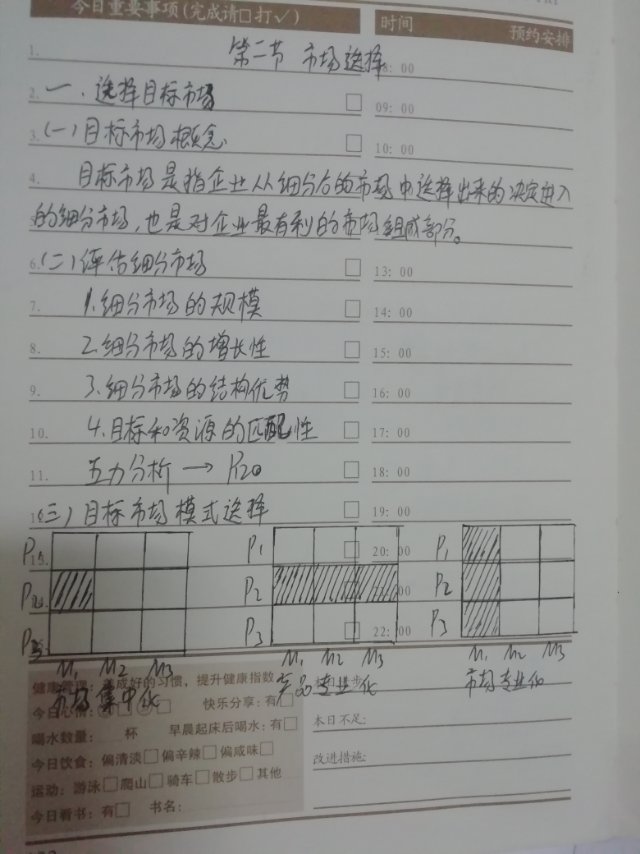 今日重要事项(完成请□打✓) 时间 预约安排
1. 第二节 市场选择 08:00
2. 一、选择目标市场 □ 09:00
3. (一)目标市场概念 □ 10:00
4. 目标市场是指企业从细分后的市场中选择出来的决定进入
的细分市场,也是对企业最有利的市场组成部分。
6. (二)评估细分市场 □ 13:00
7. 1.细分市场的规模 □ 14:00
8. 2.细分市场的增长性 □ 15:00
9. 3.细分市场的结构优势 □ 16:00
10. 4.目标和资源的匹配性 □ 17:00
11. 五力分析→P120 □ 18:00
(三)目标市场模式选择 □ 19:00
P1 P1 20:00 P1
P2 P2 P2
P3 P3 22:00 P3
M1 M2 M3 M1 M2 M3 M1 M2 M3
市场集中化 产品专业化 市场专业化
健康管理:养成好的习惯,提升健康指数
今日心情: 快乐分享:有□
喝水数量: 杯 早晨起床后喝水:有□
本日不足:
今日饮食:偏清淡□偏辛辣□偏咸味□
改进措施:
运动:游泳□爬山□骑车□散步□其他
今日看书:有□ 书名: